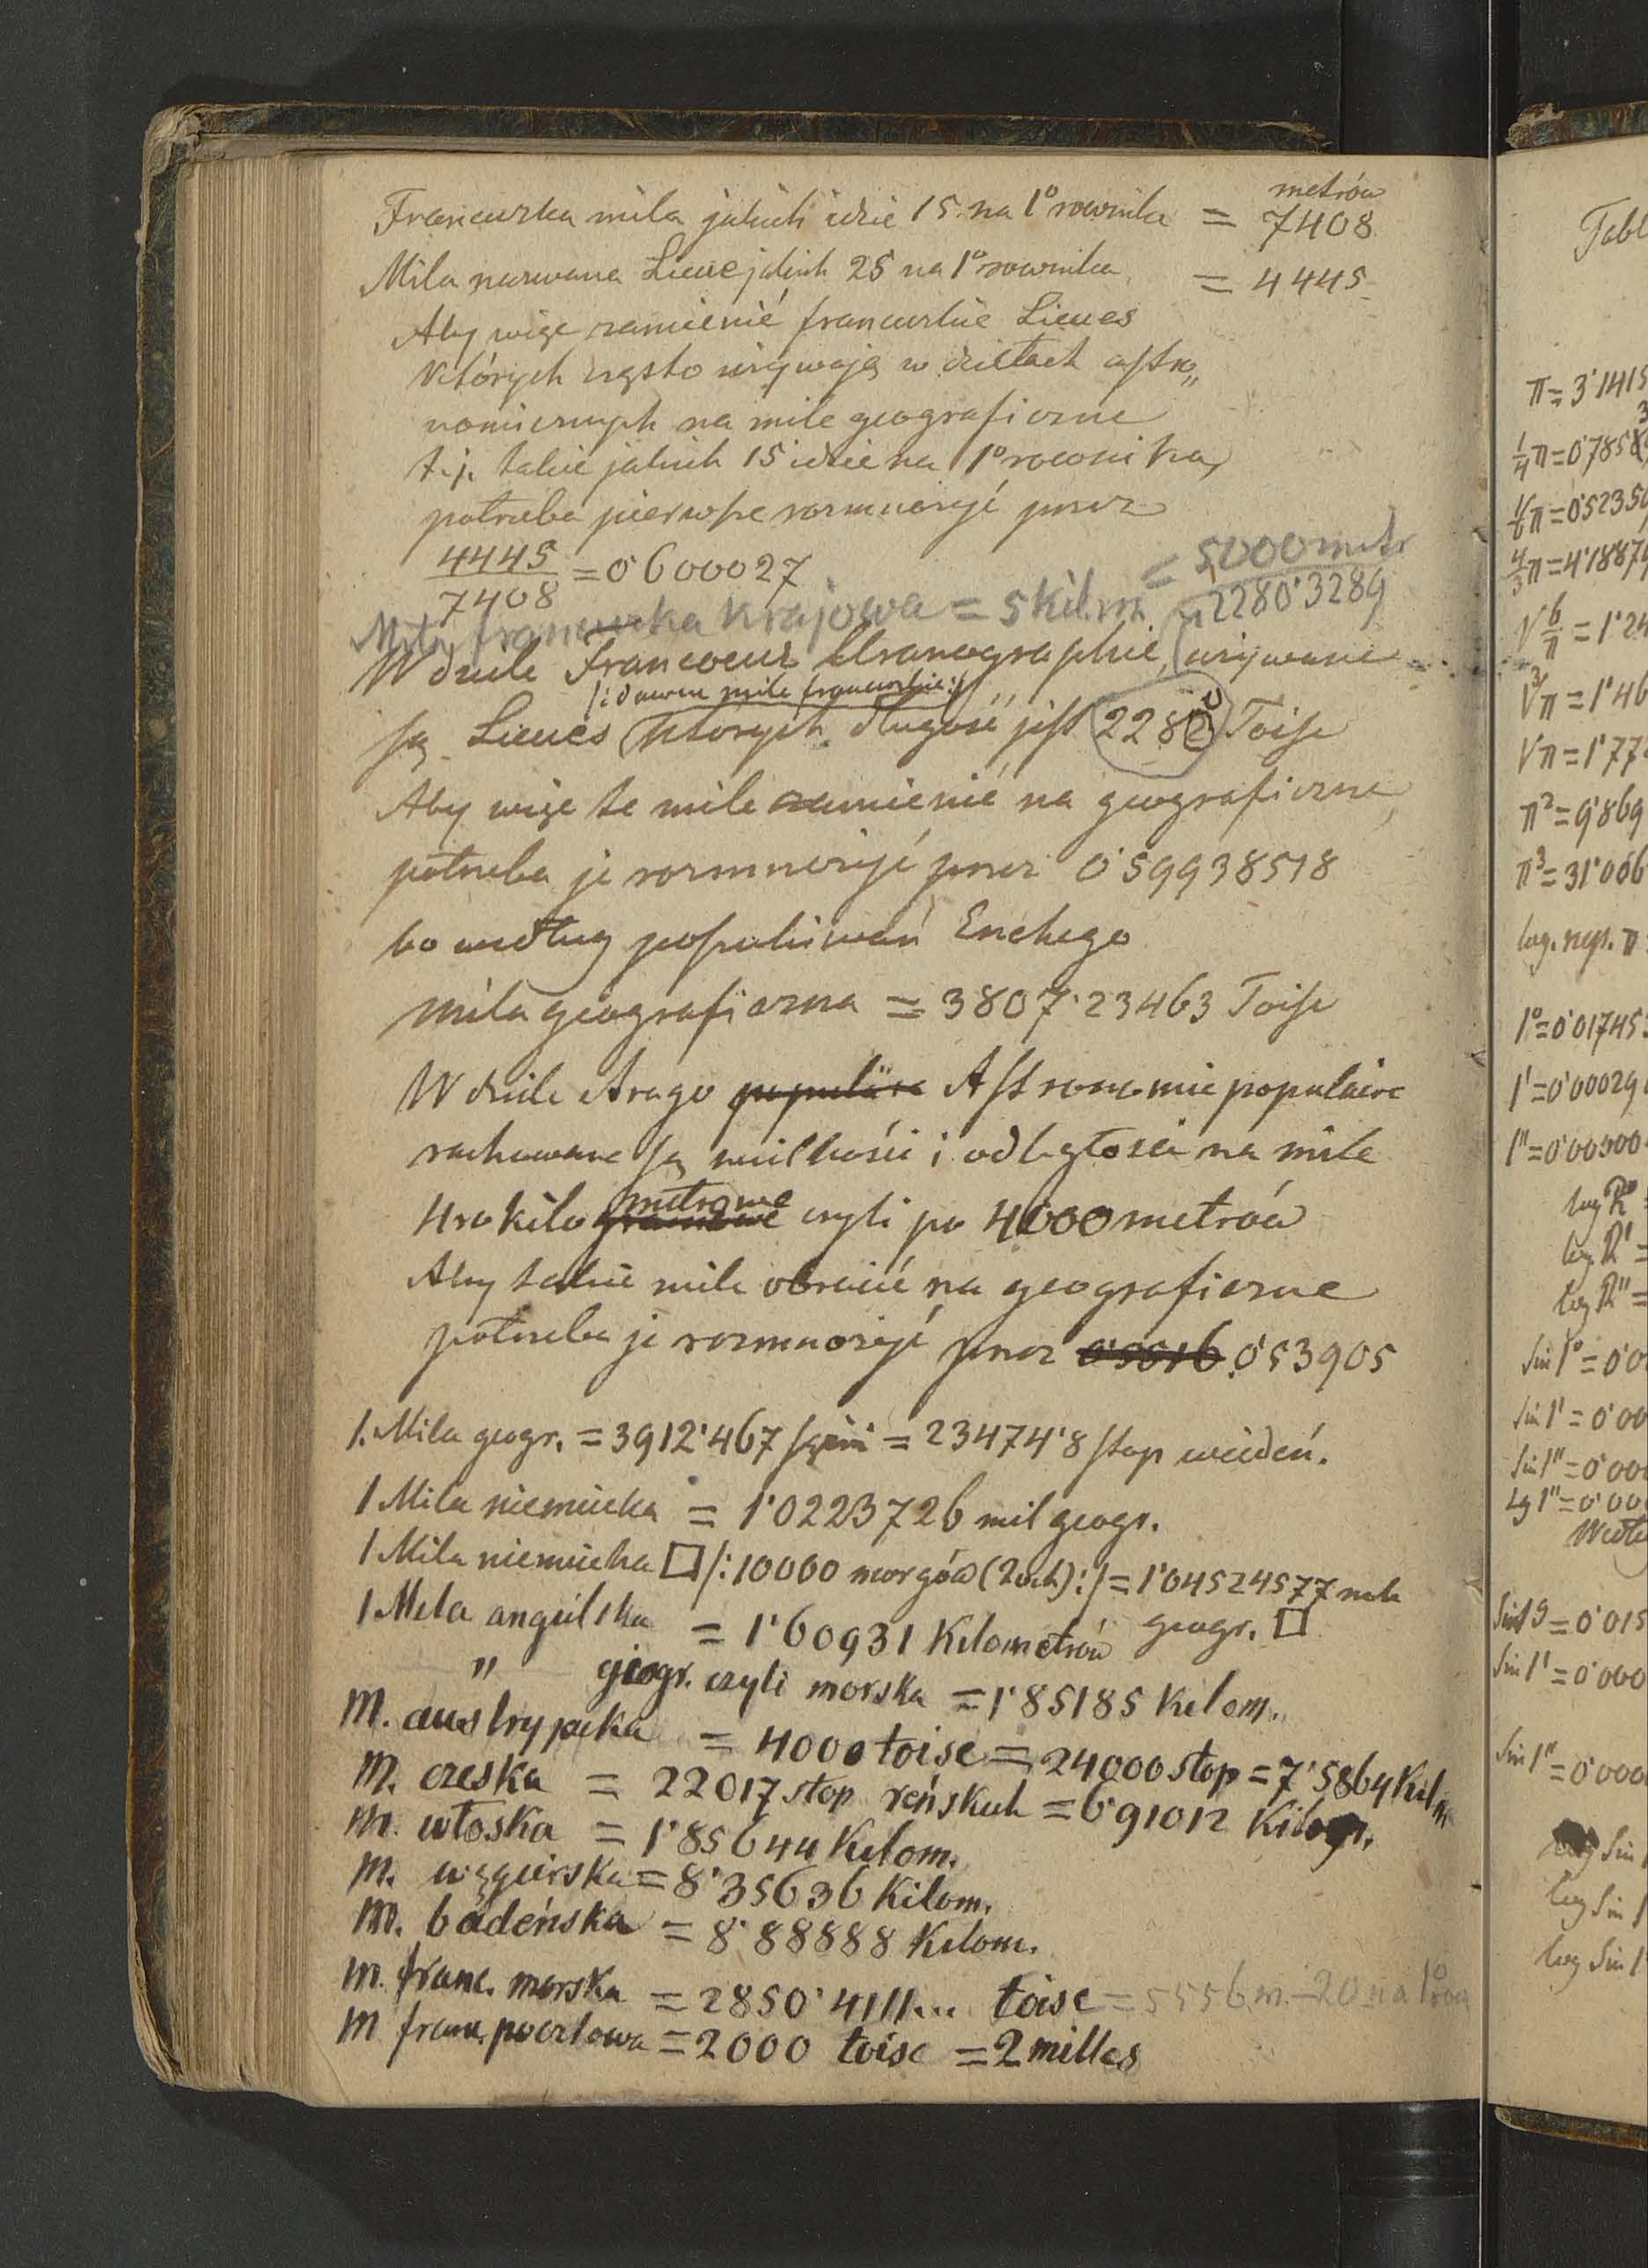 metrów
Francuzka mila jakich idzie 15 na 1° rownika = 7408
Mila nazwana Lieue jakich 25 na 1° rownika = 4445
Aby więc zamienić francuzkie Lieues
których często używają w dziełach astro„
nomicznych na mile geograficzne
t.j. takie jakich 15 idzie na 1° rownika,
potrzeba pierwsze rozmnożyć przez
4445/7408 = 0˙600027
Mila francuzka krajowa = 5 kil.m. = 5000 metr
2280˙3289
W dziele Francoeur Uranographie, używane
/:dawne mile francuzkie:/
są Lieues których długość jest 2280 Toise
Aby więc te mile zamienić na geograficzne,
potrzeba je rozmnożyć przez 0˙59938518
bo według poszukiwań Enckego
mila geograficzna = 3807˙23463 Toise
W dziele Arago populäre Astronomie populaire
rachowane są wielkości i odległości na mile
metrowe
4ro kilogramowe czyli po 4000 metrów
Aby takie mile obrócić na geograficzne
potrzeba je rozmnożyć przez 0˙53905
1. Mila geogr. = 3912˙467 sążni = 23474˙8 stop wiedeń.
1 Mila niemiecka = 1˙0223726 mil geogr.
1 Mila niemiecka □ /:10000 morgów (Joch):/ = 1˙04524577 mili
geogr. □
1 Mila angielska = 1˙60931 Kilometrów
" geogr. czyli morska = 1˙85185 Kilom.
M. austryjacka = 4000 toise = 24000 stop = 7˙5864 Kilm
M. czeska = 22017 stop reńskich = 6˙91012 Kilom.
M. włoska = 1˙85644 Kilom.
M. węgierska = 8˙35636 Kilom.
M. badeńska = 8˙88888 Kilom.
M. franc. morska = 2850˙4111... toise = 5556 m. – 20 na 1°
M franc. pocztowa = 2000 toise = 2 milles
Tabl
π = 3˙1415
¼π = 0˙785
⅙π = 0˙5235
4/3 π = 4˙1887
√6/π = 1˙24
∛π = 1˙46
√π = 1˙77
π² = 9˙869
π³ = 31˙006
log. nep. π
1° = 0˙01745
1' = 0˙00029
1" = 0˙00000
log R°
log R' =
log R" =
Sin 1° = 0˙0
Sin 1' = 0˙00
Sin 1" = 0˙00
tg 1" = 0˙00
= 0˙015
Sin 1' = 0˙000
Sin 1" = 0˙000
Sin
log Sin 1
log Sin 1